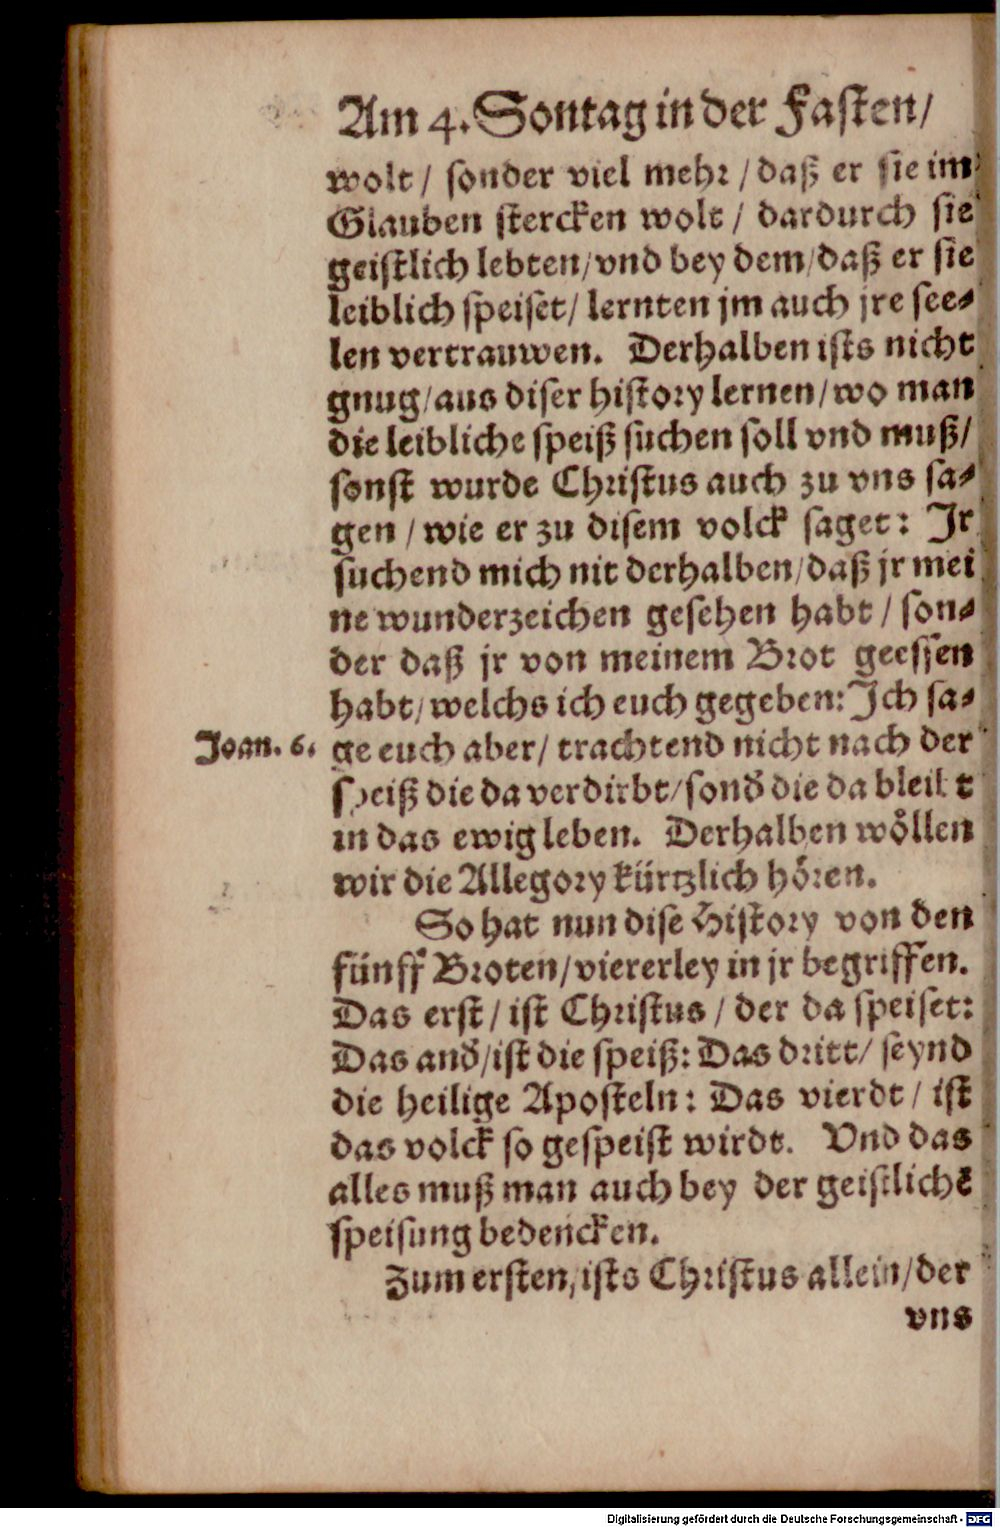 Am 4. Sontag in der Fasten/
wolt / sonder viel mehr / daß er sie im
Glauben stercken wolt / dardurch sie
geistlich lebten/vnd bey dem/daß er sie
leiblich speiset/ lernten jm auch jre see-
len vertrauwen. Derhalben ists nicht
gnug/aus diser history lernen/wo man
die leibliche speiß suchen soll vnd muß/
sonst wurde Christus auch zu vns sa-
gen / wie er zu disem volck saget: Jr
suchend mich nit derhalben/daß jr mei
ne wunderzeichen gesehen habt / son-
der daß jr von meinem Brot geessen
habt/welchs ich euch gegeben: Ich sa-
Joan. 6. ge euch aber/ trachtend nicht nach der
speiß die da verdirbt/sond̉ die da bleibt
in das ewig leben. Derhalben wöllen
wir die Allegory kürtzlich hören.
So hat nun dise History von den
fünff Broten/viererley in jr begriffen.
Das erst/ ist Christus / der da speiset:
Das and̉/ist die speiß: Das dritt/ seynd
die heilige Aposteln: Das vierdt / ist
das volck so gespeist wirdt. Vnd das
alles muß man auch bey der geistlichē
speisung bedencken.
Zum ersten, ists Christus allein/der
vns
Digitalisierung gefördert durch die Deutsche Forschungsgemeinschaft - DFG